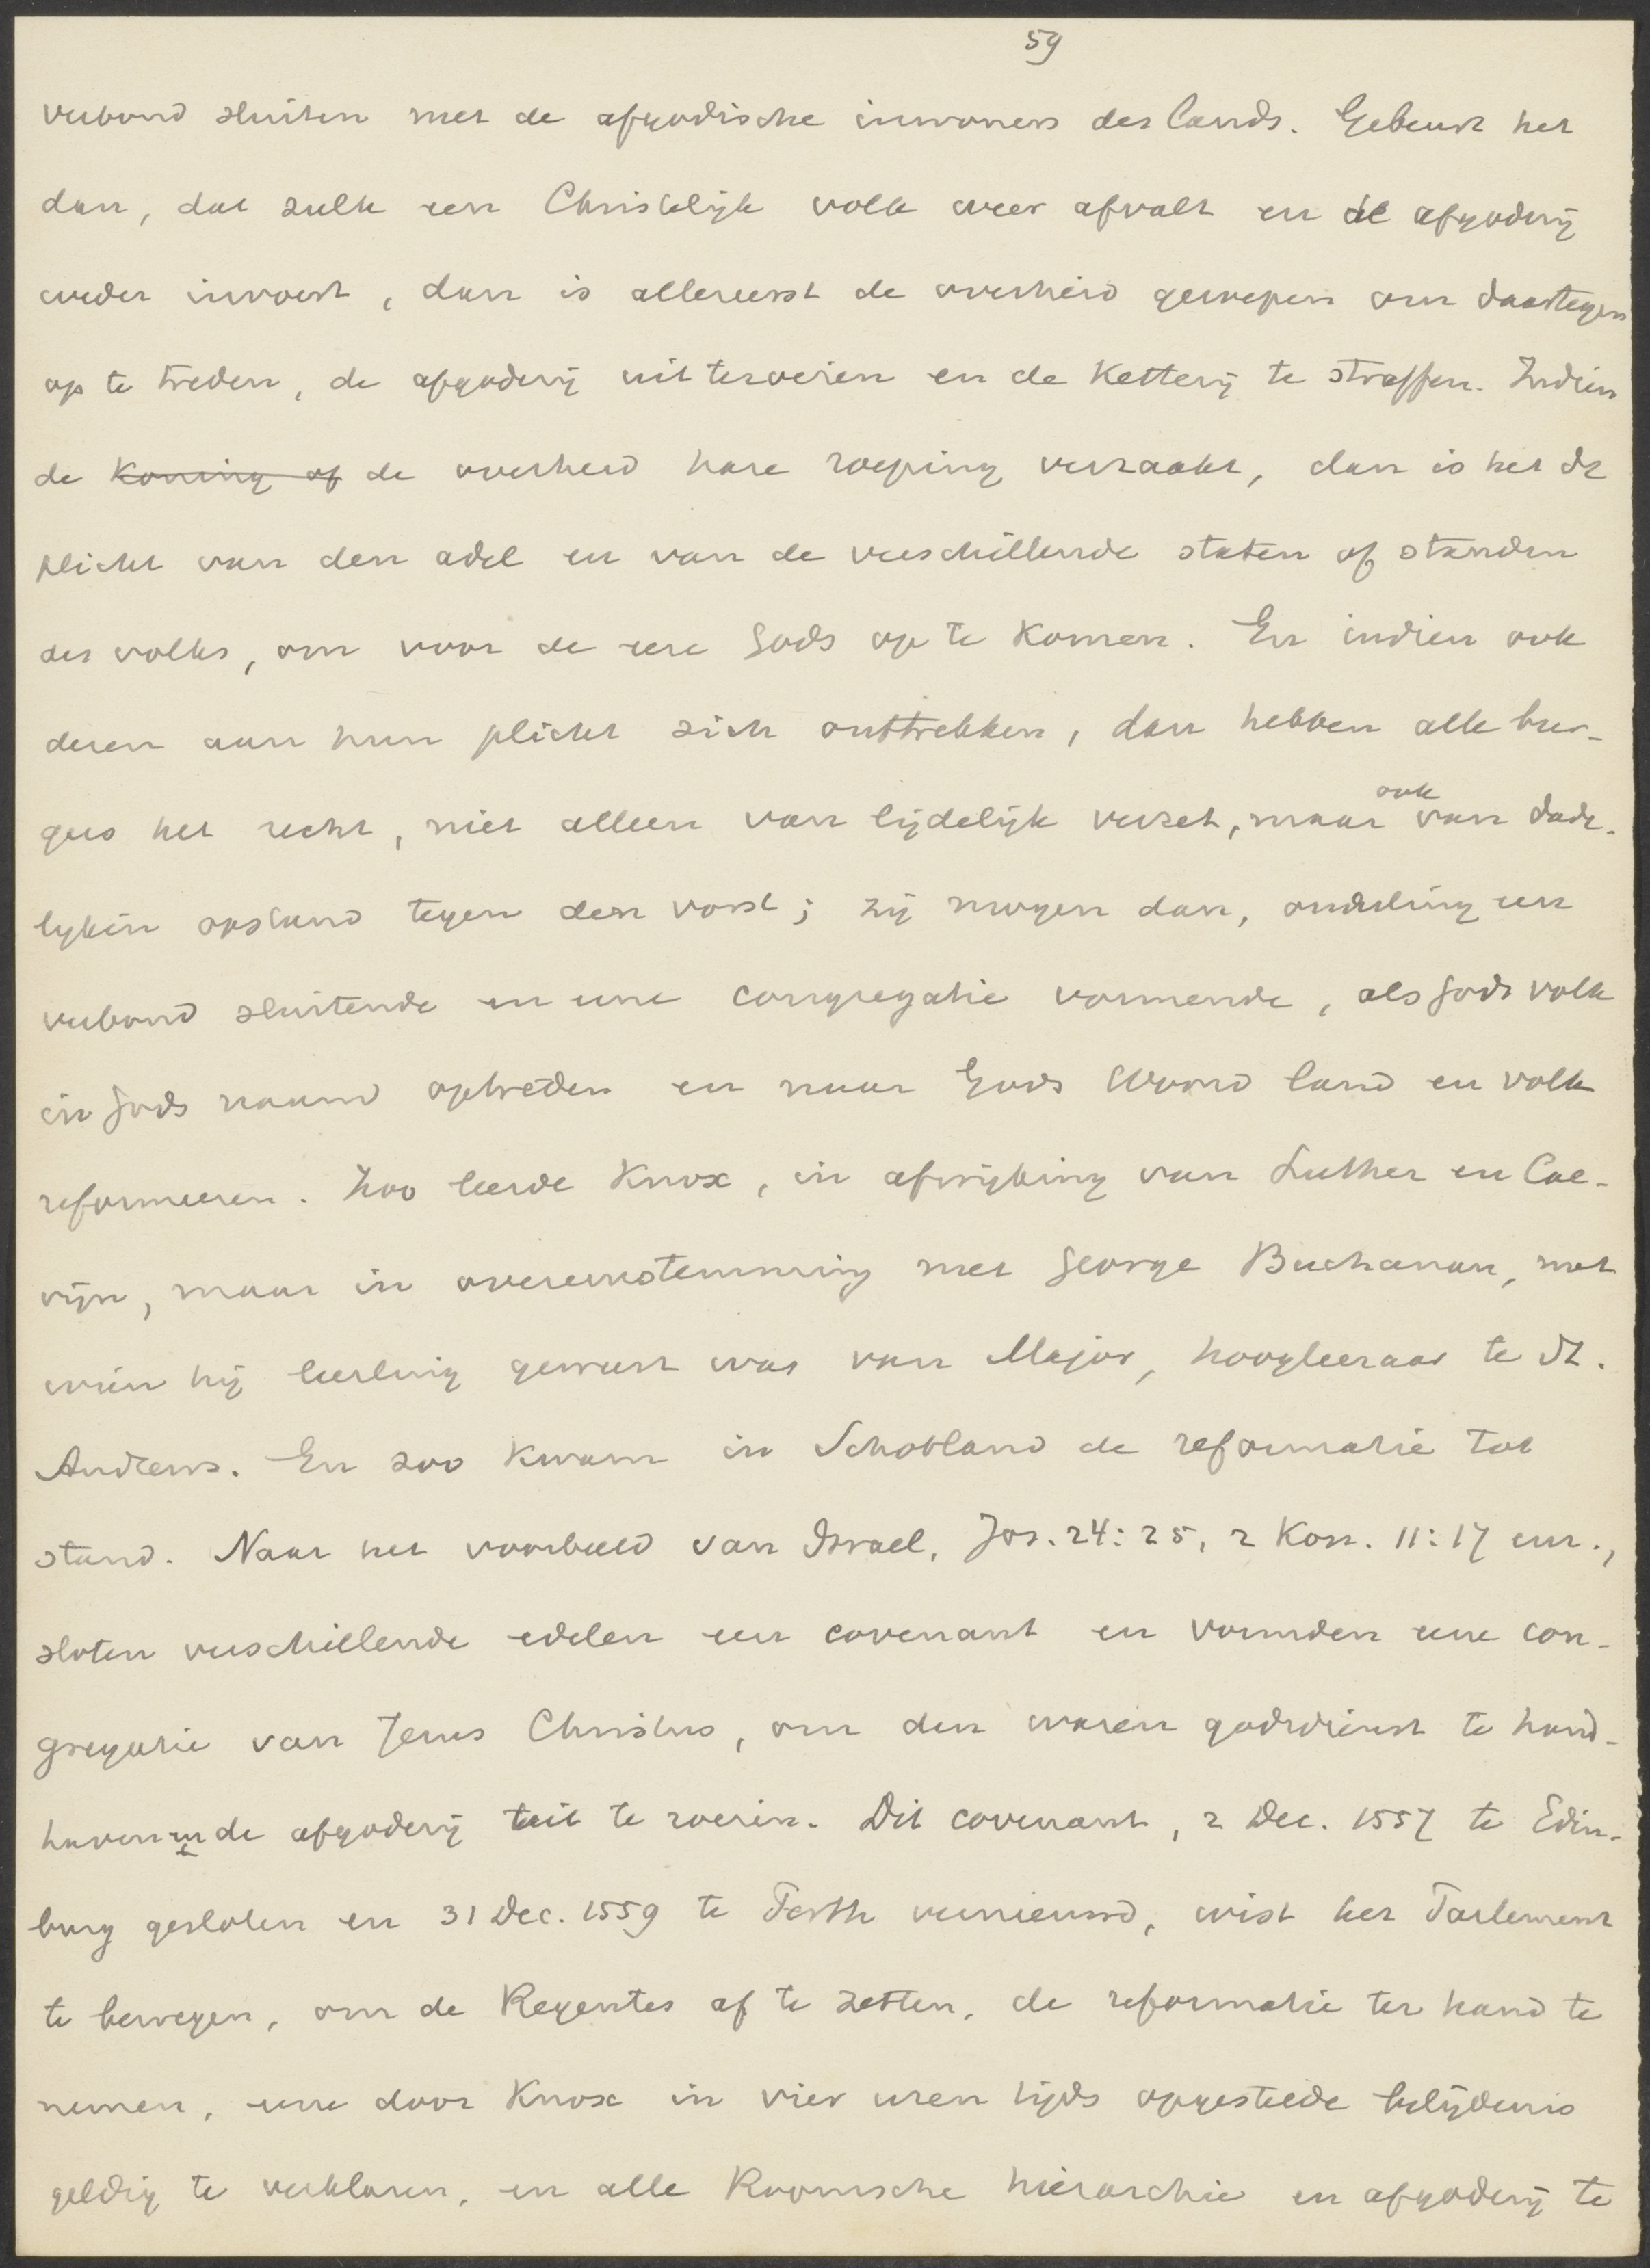 59
verbond sluiten met de afgodische inwoners des lands. Gebeurt het
dan, dat zulk een Christelijk volk weer afvalt en de afgoderij
weder invoert, dan is allereerst de overheid geroepen om daartegen
op te treden, de afgoderij uit teroeien en de Ketterij te straffen. Indien
de Koning of de overheid hare roeping verzaakt, dan is het de
plicht van den adel en van de verschillende staten of standen
des volks, om voor de eere Gods op te Komen. En indien ook
dezen aan hun plicht zich onttrekken, dan hebben alle bur-
gers het recht, niet alleen van lijdelijk verzet, maar ook van dade-
lijken opstand tegen den vorst; zij mogen dan, onderling een
verbond sluitende en eene congregatie vormende, als Gods volk
in Gods naam optreden en naar Gods Woord land en volk
reformeeren. Zoo leerde Knox, in afwijking van Luther en Cal-
vijn, maar in overeenstemming met George Buchanan, met
wien hij leerling geweest was van Major, hoogleeraar te St.
Andrews. En zoo Kwam in Schotland de reformatie tot
stand. Naar het voorbeeld van Israel, Joz. 24:25, 2 Kon. 11:17 enz.,
sloten verschillende edelen een covenant en vormden eene con-
gregatie van Jezus Christus, om den waren godsdienst te hand-
haven en de afgoderij uit te roeien. Dit covenant, 2 Dec. 1557 te Edin-
burg gesloten en 31 Dec. 1559 te Perth vernieuwd, wist het Parlement
te bewegen, om de Regentes af te zetten, de reformatie ter hand te
nemen, eene door Knox in vier uren tijds opgestelde belijdenis
geldig te verklaren, en alle Roomsche hierarchie en afgoderij te